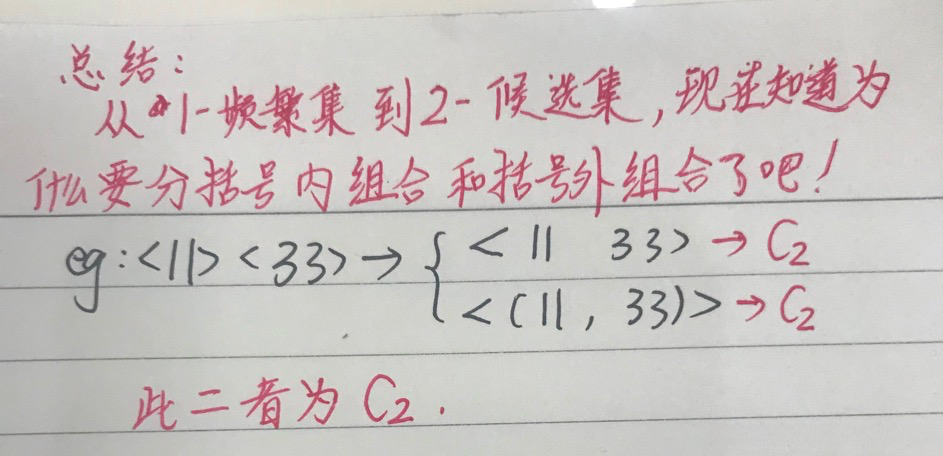 总结：
从1-频繁集到2-候选集，现在知道为
什么要分括号内组合和括号外组合了吧！
eg：<11> <33> → { <11 33> → C₂
<(11, 33)> → C₂
此二者为 C₂.